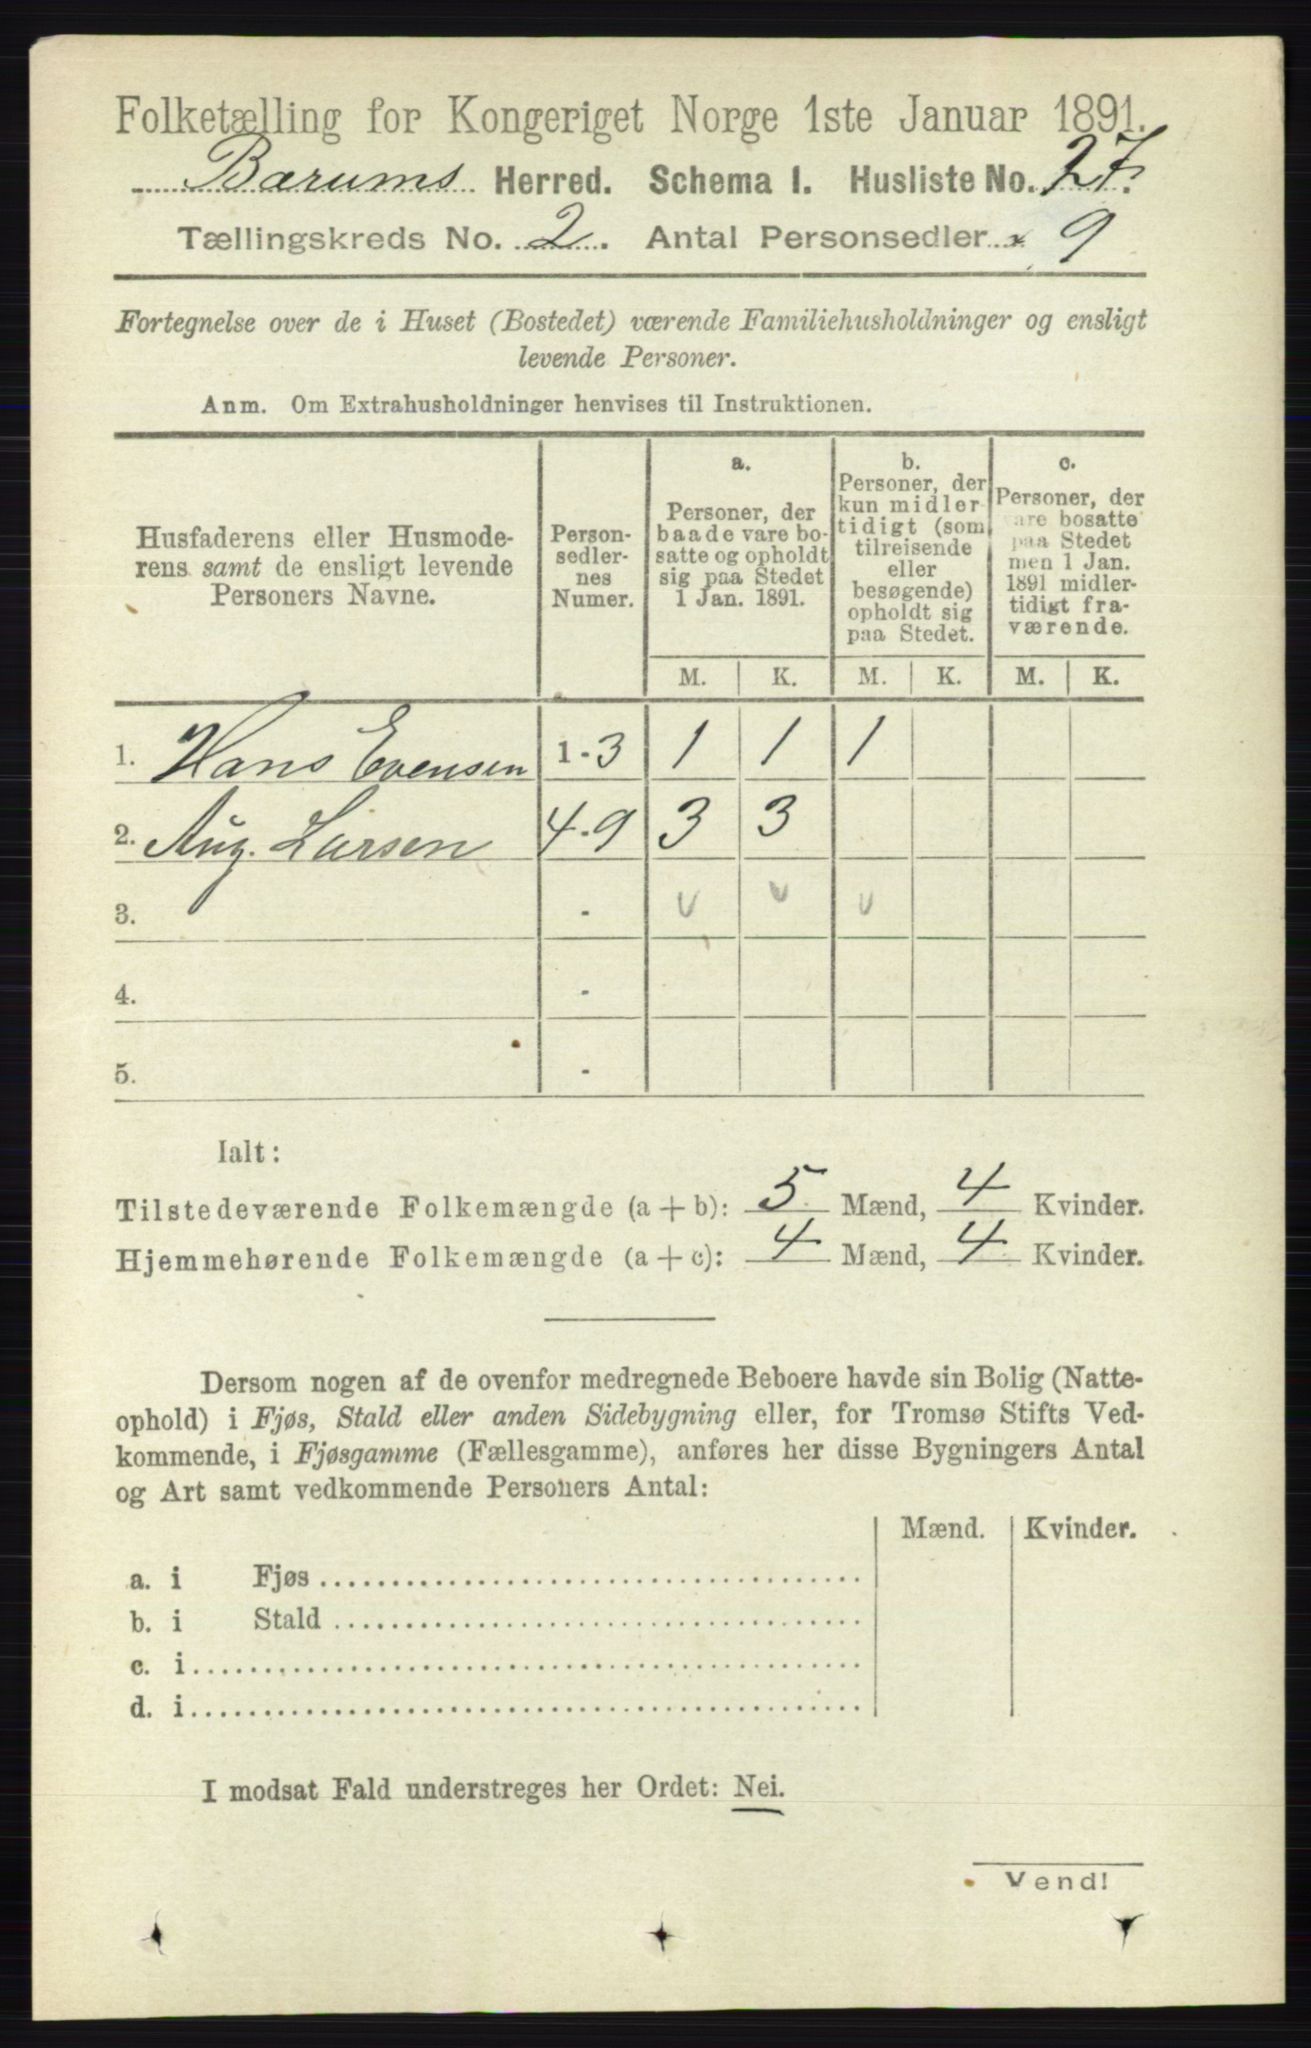 Folketælling for Kongeriget Norge 1ste Januar 1891.
Bærums Herred. Schema I. Husliste No. 27.
Tællingskreds No. 2. Antal Personsedler 9
Fortegnelse over de i Huset (Bostedet) værende Familiehusholdninger og ensligt
levende Personer.
Anm. Om Extrahusholdninger henvises til Instruktionen.
Husfaderens eller Husmode-
rens samt de ensligt levende
Personers Navne.
Person-
sedler-
nes
Numer.
a.
Personer, der
baade vare bo-
satte og opholdt
sig paa Stedet
1 Jan. 1891.
b.
Personer, der
kun midler-
tidigt (som
tilreisende
eller
besøgende)
opholdt sig
paa Stedet.
c.
Personer, der
vare bosatte
paa Stedet
men 1 Jan.
1891 midler-
tidigt fra-
værende.
M. K. M. K. M. K.
1. Hans Evensen 1-3 1 1 1
2. Aug. Larsen 4-9 3 3
3. - v v v
4. -
5. -
Ialt:
Tilstedeværende Folkemængde (a + b): 5 Mænd, 4 Kvinder.
Hjemmehørende Folkemængde (a + c): 4 Mænd, 4 Kvinder.
Dersom nogen af de ovenfor medregnede Beboere havde sin Bolig (Natte-
ophold) i Fjøs, Stald eller anden Sidebygning eller, for Tromsø Stifts Ved-
kommende, i Fjøsgamme (Fællesgamme), anføres her disse Bygningers Antal
og Art samt vedkommende Personers Antal:
Mænd. Kvinder.
a. i Fjøs
b. i Stald
c. i
d. i
I modsat Fald understreges her Ordet: Nei.
Vend!